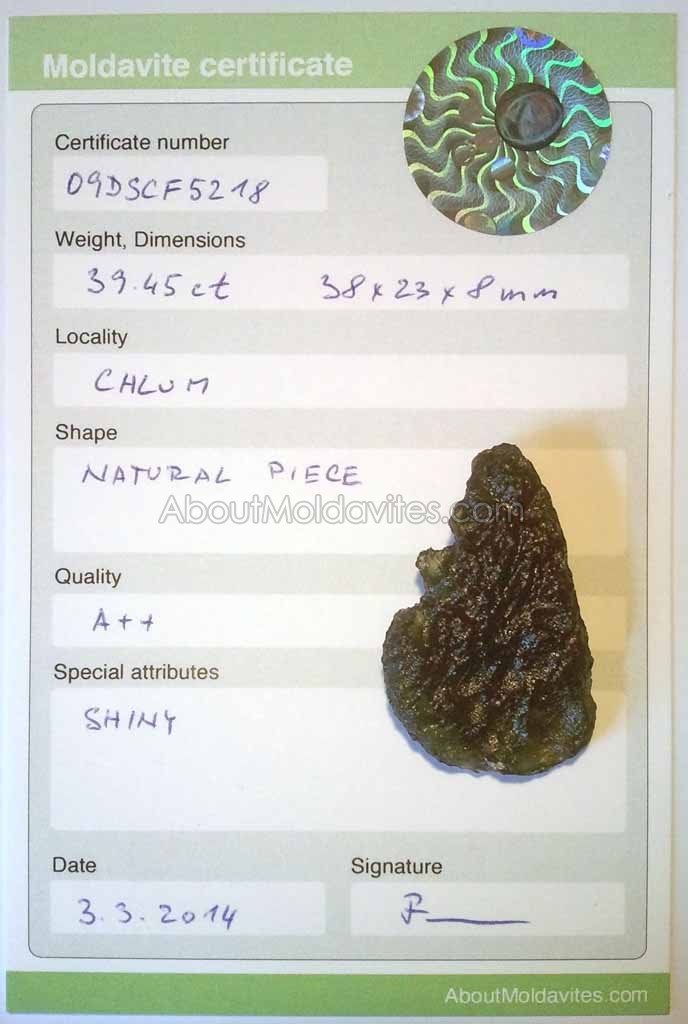 Moldavite certificate
Certificate number
09DSCF5218
Weight, Dimensions
39.45 ct 38 x 23 x 8 mm
Locality
CHLUM
Shape
NATURAL PIECE
AboutMoldavites.com
Quality
A++
Special attributes
SHINY
Date Signature
3.3.2014
AboutMoldavites.com